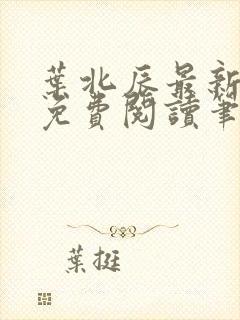 葉北辰最新
免費閱讀筆
葉挺